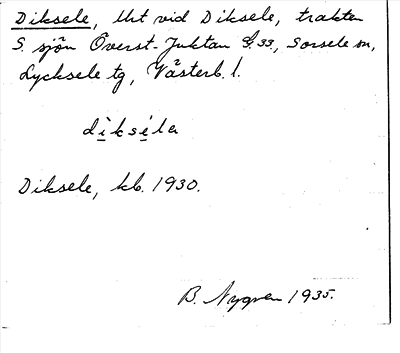 Diksele, Uht vid Diksele, trakten
S. sjön Överst-Juktan G. 33, Sorsele sn,
Lycksele tg, Västerb. l.
diksela
Diksele, kb. 1930.
B. Nygren 1935.